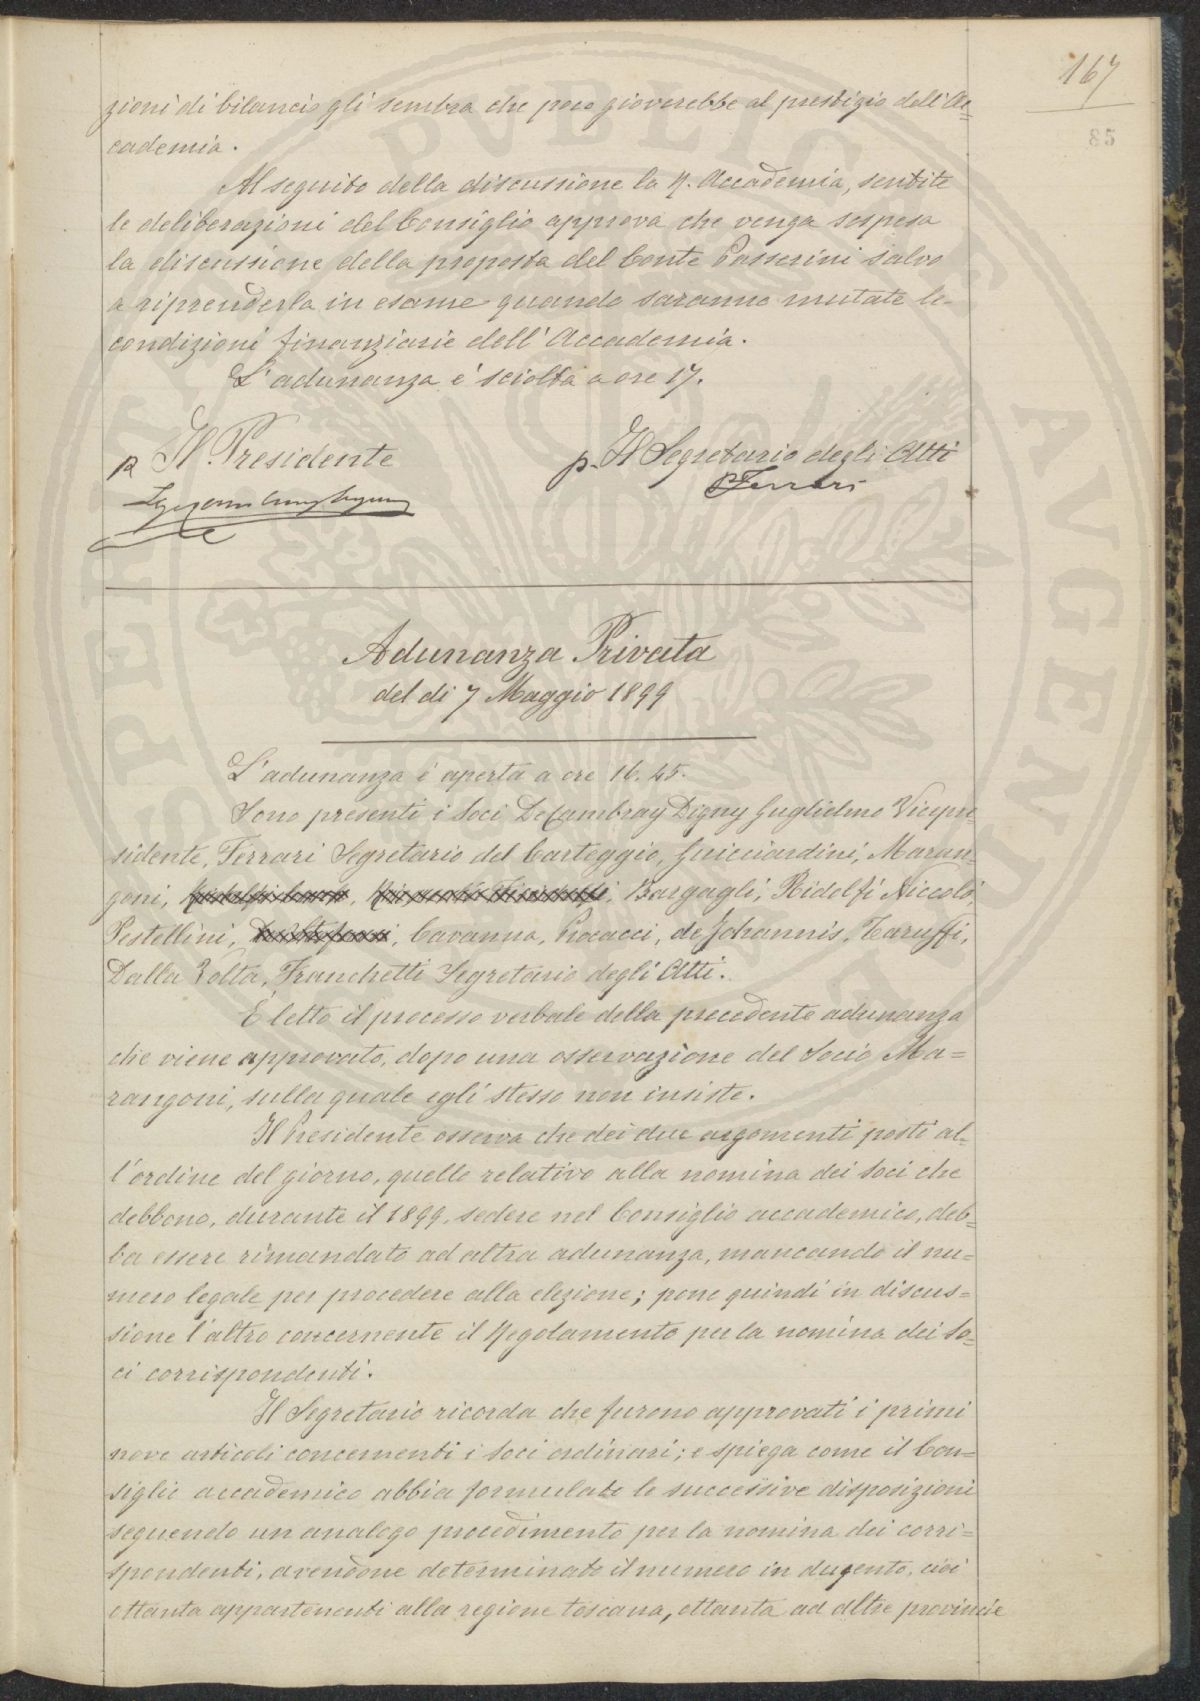 167
85
zioni di bilancio gli sembra che poco gioverebbe al prestigio dell'Ac=
cademia.
Al seguito della discussione la R. Accademia, sentite
le deliberazioni del Consiglio approva che venga sospesa
la discussione della proposta del Conte Passerini salvo
a riprenderla in esame quando saranno mutate le
condizioni finanziarie dell'Accademia.
L'adunanza è sciolta a ore 17.
p Il Presidente
p. Il Segretario degli Atti
Ferrari
Adunanza Privata
del dì 7 Maggio 1899
L'adunanza è aperta a ore 16.45.
Sono presenti i Soci De Cambray Digny Guglielmo Vicepre=
sidente, Ferrari Segretario del Carteggio, Guicciardini, Maran=
goni, Bargagli, Ridolfi Niccolò,
Pestellini, Cavanna, de Johannis, Taruffi,
Dalla Volta, Franchetti Segretario degli Atti.
È letto il processo verbale della precedente adunanza
che viene approvato, dopo una osservazione del Socio Ma=
rangoni, sulla quale egli stesso non insiste.
Il Presidente osserva che dei due argomenti posti al=
l'ordine del giorno, quello relativo alla nomina dei Soci che
debbono, durante il 1899, sedere nel Consiglio accademico, deb=
ba essere rimandato ad altra adunanza, mancando il nu=
mero legale per procedere alla elezione; pone quindi in discus=
sione l'altro concernente il Regolamento per la nomina dei So=
ci corrispondenti.
Il Segretario ricorda che furono approvati i primi
nove articoli concernenti i Soci ordinari; e spiega come il Con=
siglio accademico abbia formulate le successive disposizioni
seguendo un analogo procedimento per la nomina dei corri=
spondenti, avendone determinato il numero in dugento, cioè
ottanta appartenenti alla regione toscana, ottanta ad altre provincie